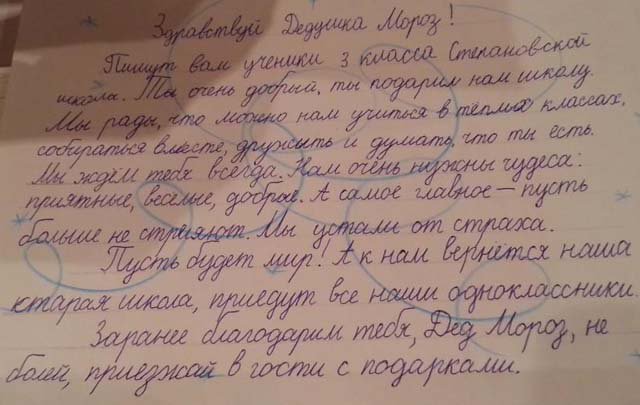 Здравствуй Дедушка Мороз!
Пишут вам ученики 3 класса Степановской
школа. Ты очень добрый, ты подарил нам школу.
Мы рады, что можно нам учиться в тёплых классах,
собираться вместе, дружить и думать, что ты есть.
Мы ждём тебя всегда. Нам очень нужны чудеса:
приятные, весёлые, добрые. А самое главное – пусть
больше не стреляют. Мы устали от страха.
Пусть будет мир! А к нам вернётся наша
старая школа, приедут все наши одноклассники.
Заранее благодарим тебя, Дед Мороз, не
болей, приезжай в гости с подарками.